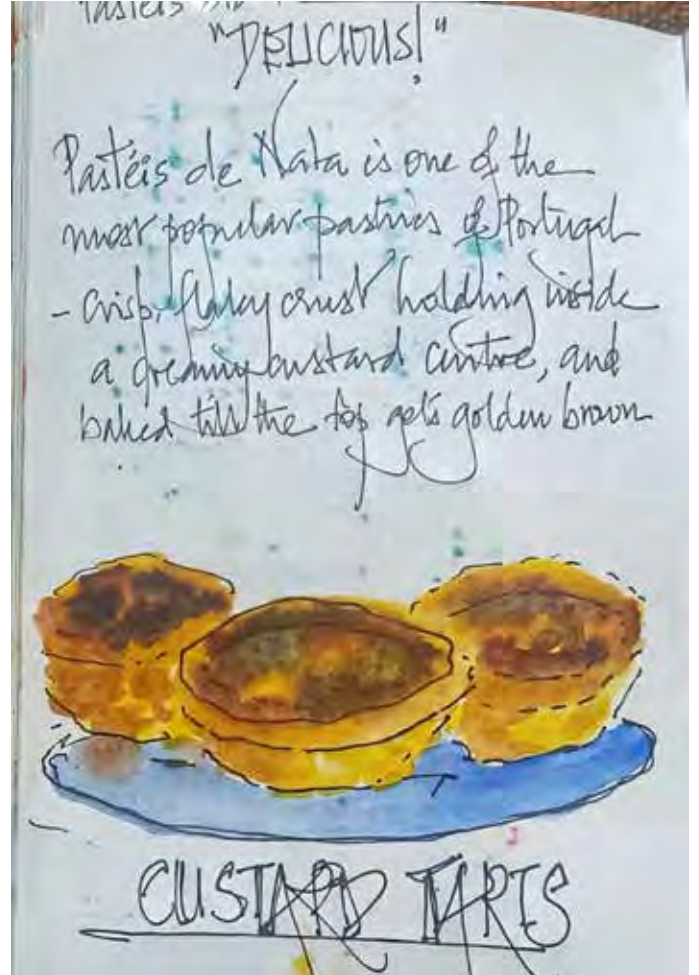 Pastéis
"DELICIOUS!"
Pastéis de Nata is one of the
most popular pastries of Portugal
- crisp, flaky crust holding inside
a creamy custard centre, and
baked till the top gets golden brown
CUSTARD TARTS